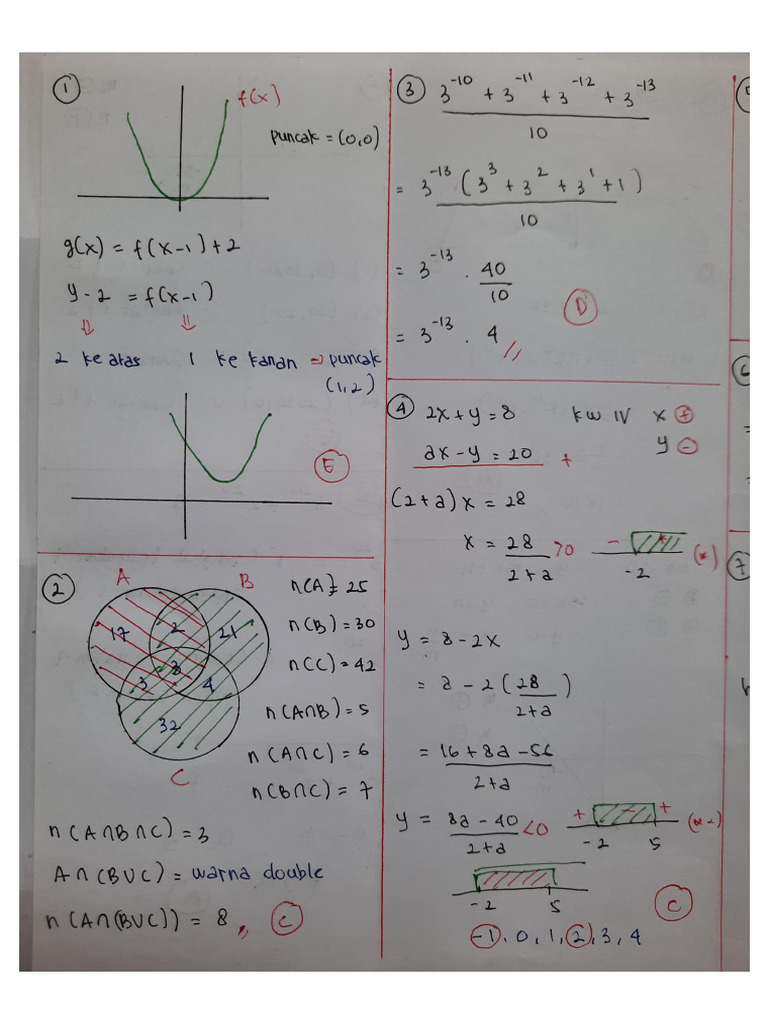 1
f(x)
puncak = (0,0)
g(x) = f(x-1)+2
y-2 = f(x-1)
⇓ ⇓
2 ke atas 1 ke kanan ⇒ puncak
(1,2)
E
2
A B
17 2 21
3 3 4
32
C
n(A) = 25
n(B) = 30
n(C) = 42
n(A∩B) = 5
n(A∩C) = 6
n(B∩C) = 7
n(A∩B∩C) = 3
A∩(B∪C) = warna double
n(A∩(B∪C)) = 8 // C
3
3^-10 + 3^-11 + 3^-12 + 3^-13
10
= 3^-13 (3^3 + 3^2 + 3^1 + 1)
10
= 3^-13 . 40
10
D
= 3^-13 . 4 //
4
2x+y = 8 kw IV x +
ax-y = 20 + y -
(2+a) x = 28
x = 28 >0 - + (*)
2+a -2
y = 8 - 2x
= 8 - 2 ( 28 )
2+a
= 16+8a-56
2+a
y = 8a-40 <0 + - +
2+a -2 5
-2 5
C
-1, 0, 1, 2, 3, 4
6
7